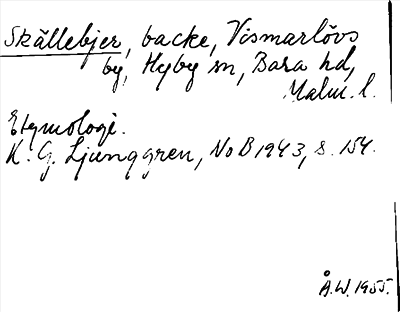 Skällebjer, backe, Vismarlövs
by, Hyby sn, Bara hd,
Malm. l.
Etymologi.
K. G. Ljunggren, NoB 1943, s. 154.
Å.W. 1955.